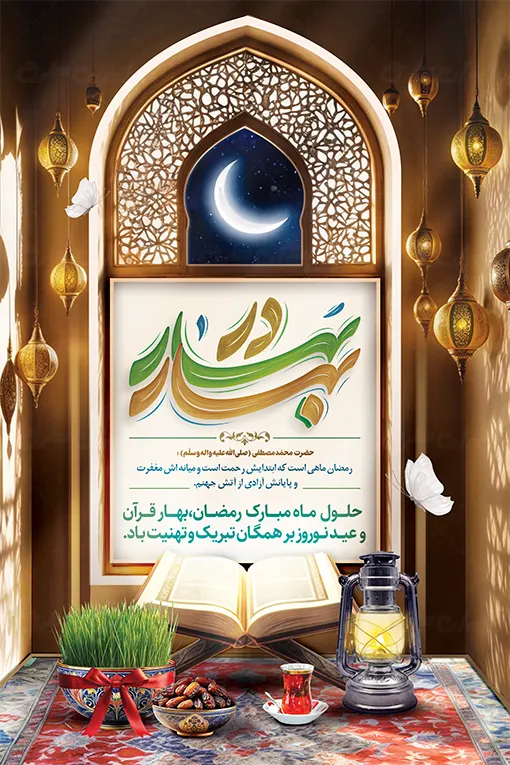 بهار در بهار
حضرت محمد مصطفی (صلی‌الله‌علیه‌واله‌وسلم) :
رمضان ماهی است که ابتدایش رحمت است و میانه اش مغفرت
و پایانش آزادی از آتش جهنم.
حلول ماه مبارک رمضان،بهار قرآن
و عید نوروز بر همگان تبریک و تهنیت باد.